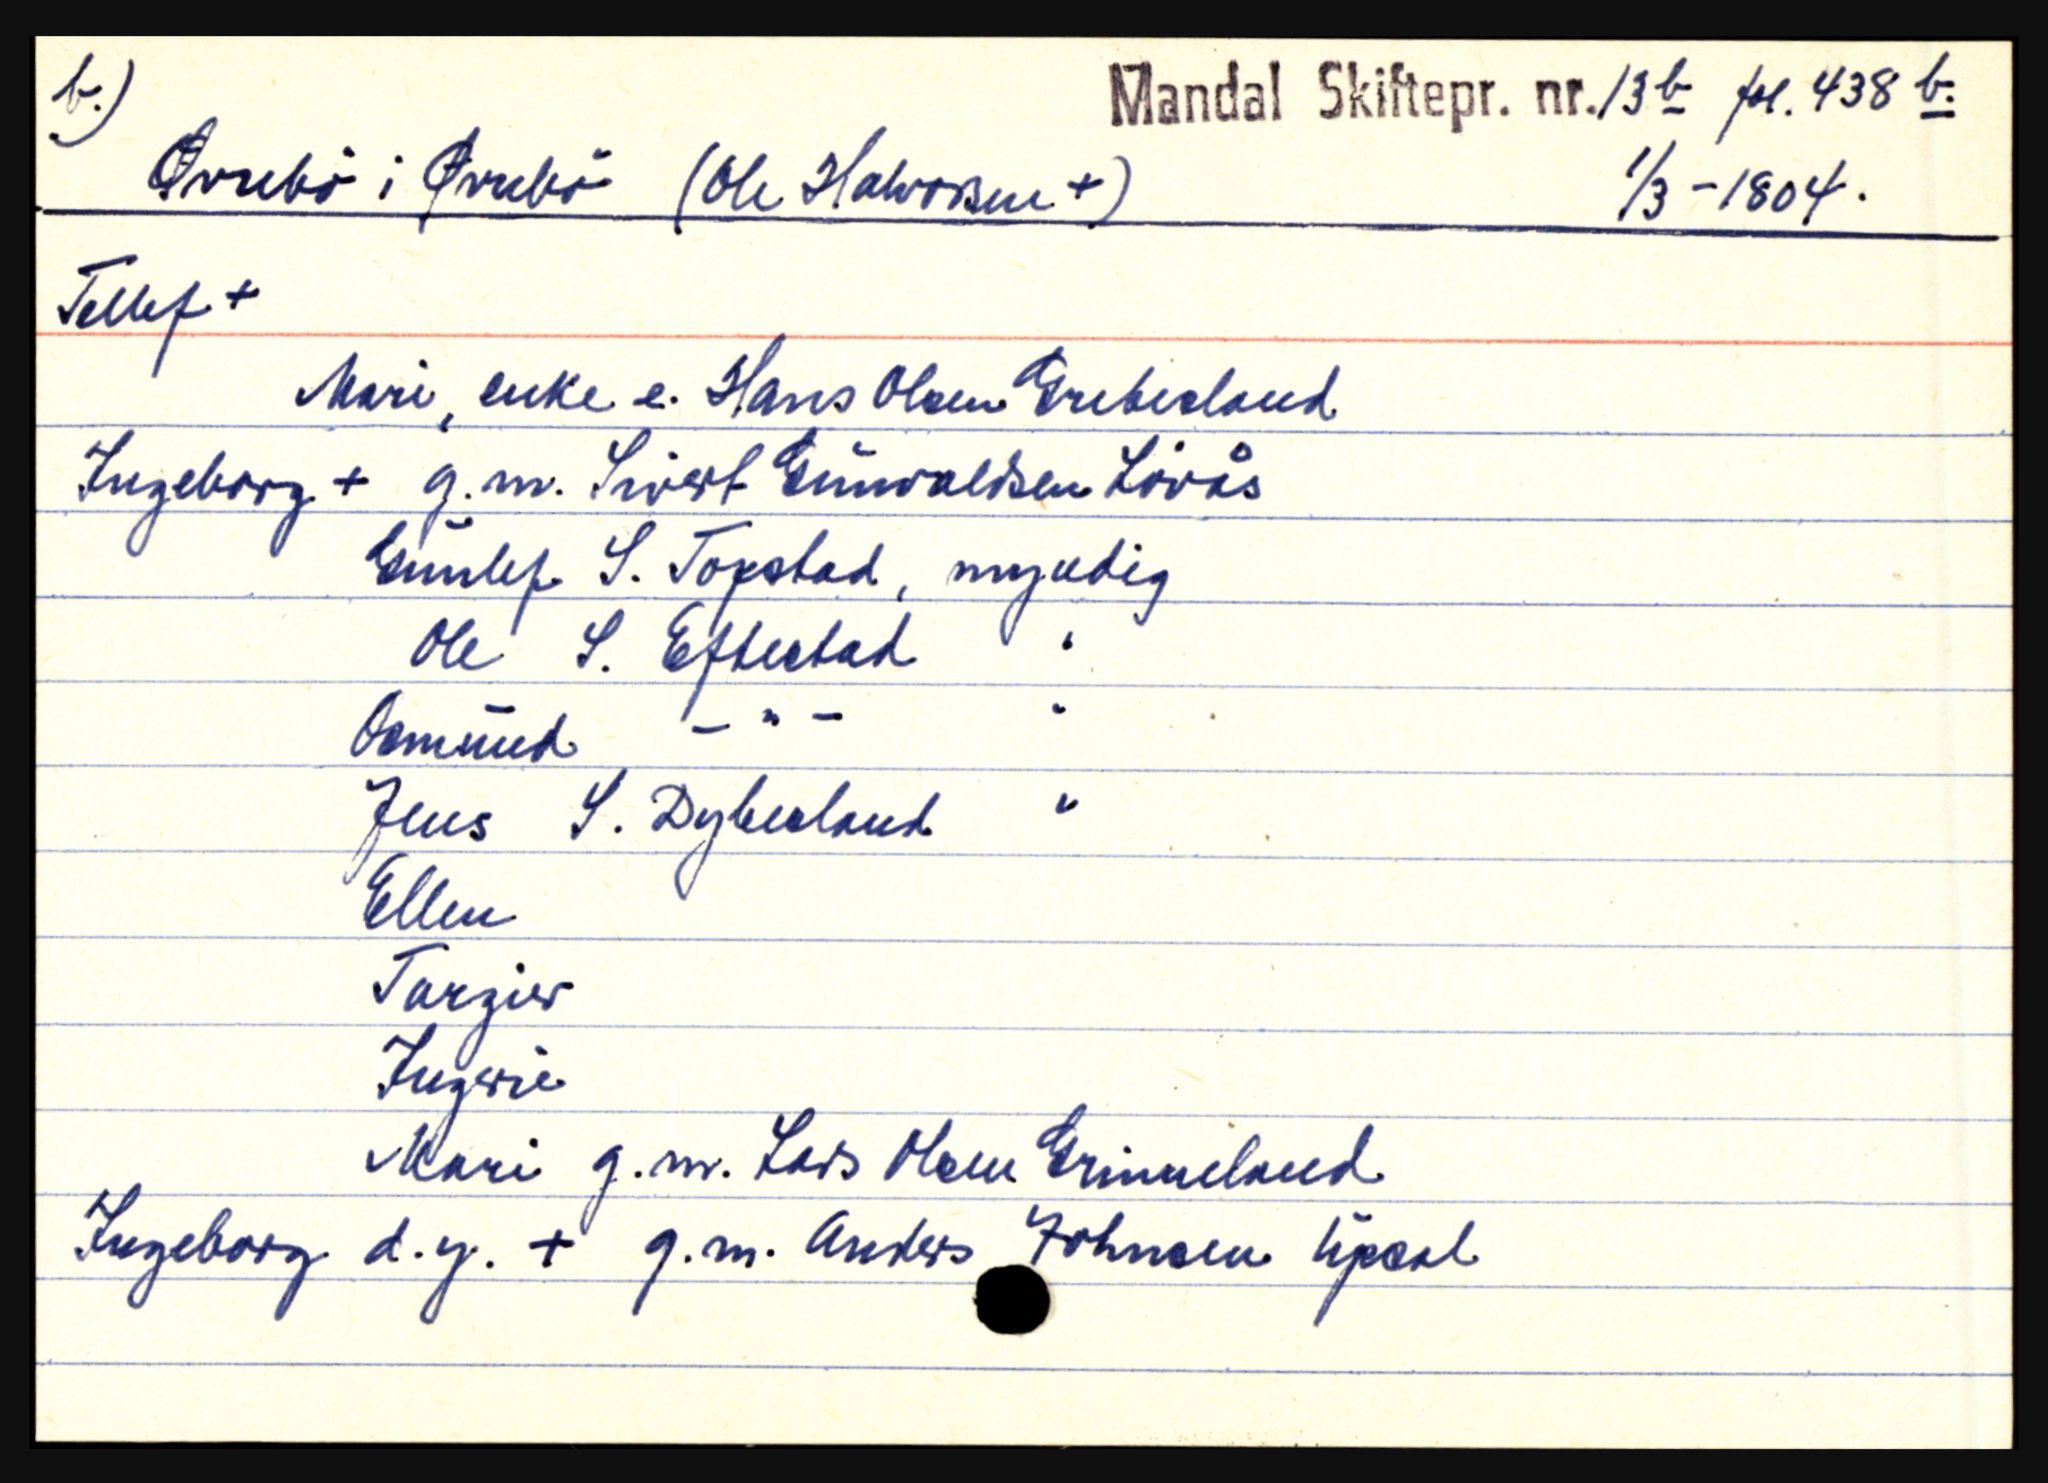 b.) Mandal Skiftepr. nr. 13b fol. 438 b.
Øvrebö i Øvrebö (Ole Halvorsen +) 1/3 - 1804.
Tellef +
Mari, enke e. Hans Olsen Grebesland
Ingeborg + g.m. Sivert Gunvaldsen Lövås
Gunlef S. Topstad, myndig
Ole S. Eftestad "
Osmund - " - "
Jens S. Dybesland "
Ellen
Targier
Ingerie
Mari g.m. Lars Olsen Grimeland
Ingeborg d.y. + g.m. Anders Johnsen Upsal